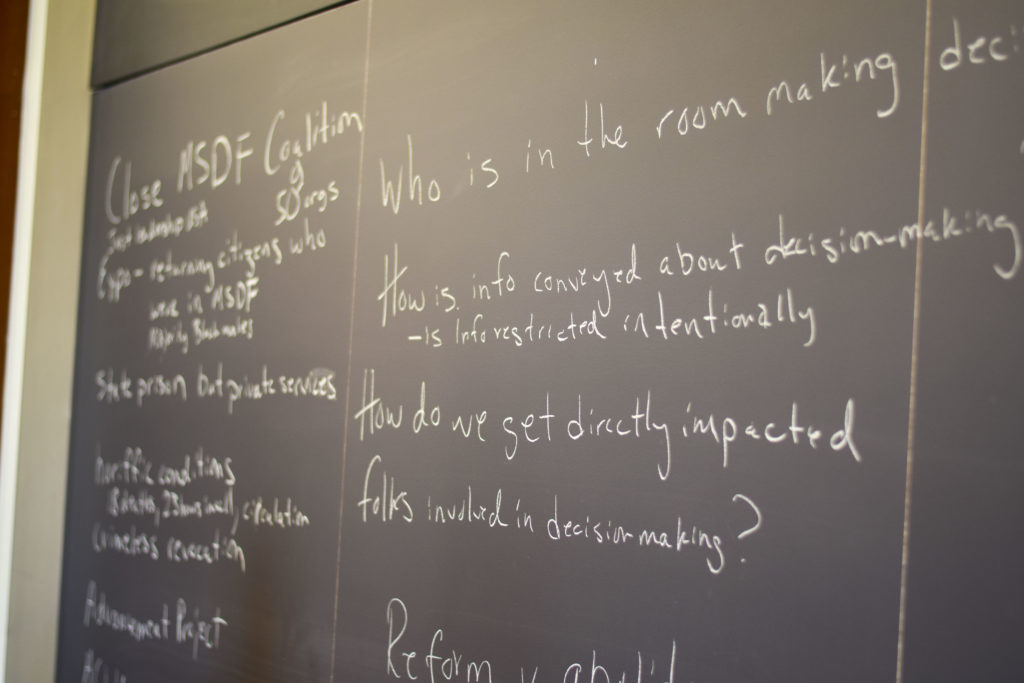 Close MSDF Coalition
50 orgs
Expo - returning citizens who
were in MSDF
Majority Black males
State prison but private services
horrific conditions
deaths, 23 hours in cell, circulation
Crimeless revocation
Advancement Project
Who is in the room making
How is info conveyed about decision-making
- is info restricted intentionally
How do we get directly impacted
folks involved in decision making?
Reform v